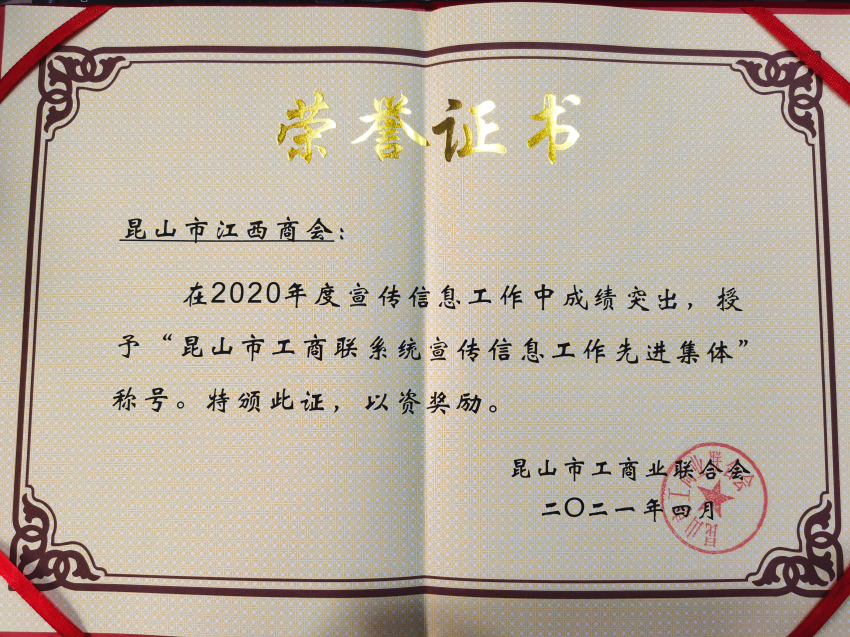 荣誉证书
昆山市江西商会:
在2020年度宣传信息工作中成绩突出，授
予“昆山市工商联系统宣传信息工作先进集体”
称号。特颁此证，以资奖励。
昆山市工商业联合会
二〇二一年四月
昆山市工商业联合会